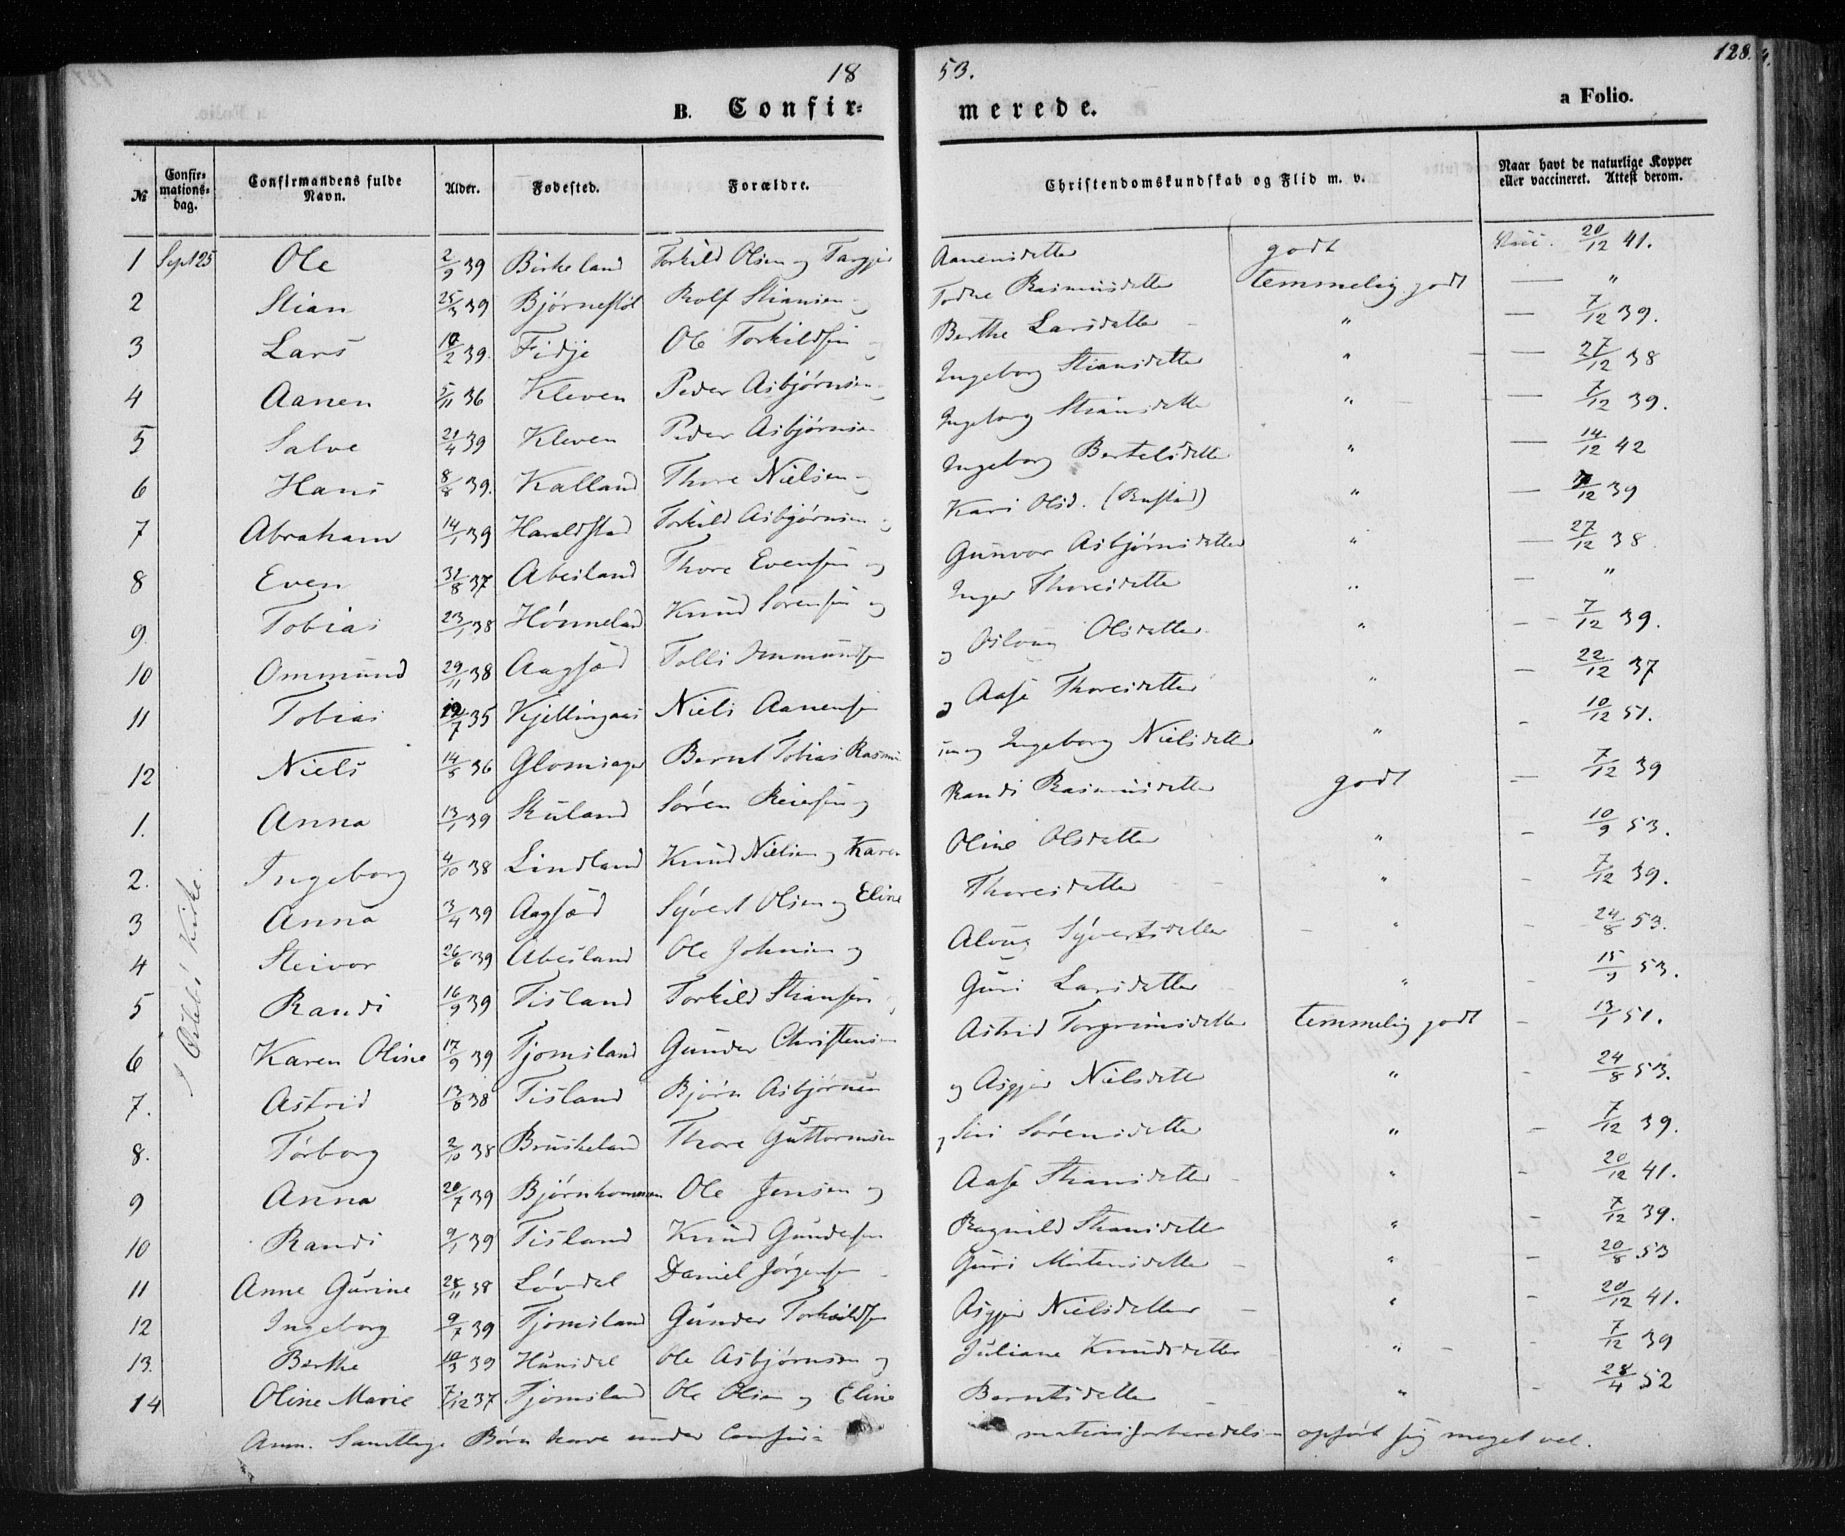 18 53. 128.
B. Confir= merede. a Folio.
№ Confir= mations= dag. Confirmandens fulde Navn. Alder. Fødested. Forældre. Christendomskundskab og Flid m. v. Naar havt de naturlige Kopper eller vaccineret. Attest derom.
1 Sept 25 Ole 2/9 39 Birkeland Torkild Olsen og Targjer Aanensdatter godt Vacc. 20/12 41.
2 Stian 25/3 39 Bjørnestøl Rolf Stiansen og Todne Rasmusdatter temmelig godt — "
3 Lars 10/2 39. Fidje Ole Torkildsen og Berthe Larsdatter " — 7/12 39.
4 Aanen 5/11 36 Kleven Peder Asbjørnsen og Ingeborg Stiansdatter " — 27/12 38
5 Salve 21/4 39 Kleven Peder Asbjørnsen Ingeborg Stiansdatter " — 7/12 39.
6 Hans 8/8 39. Kalland Thore Nielsen og Ingeborg Bertelsdatter " — 14/12 42
7 Abraham 14/1 39 Haraldstad Torkild Asbjørnsen og Kari Olsd. (Rustad) " — 7/12 39
8 Even 31/8 37 Abeiland Thore Evensen og Gunvor Asbjørnsdatter " — 27/12 38
9. Tobias 23/1 38 Hønneland Knud Sørensen og Inger Thoresdatter " — "
10 Ommund 29/11 38 Aagsæd Tolli Ommundsen og Olsdatter " — 7/12 39.
11 Tobias 12/7 35 Kjellingaas Niels Aanensen og Aase Thoresdatter " — 22/12 37
12 Niels 14/5 36 Glomsager Bernt Tobias Rasmussen og Ingeborg Nielsdatter " - 10/12 51.
1. Anna 13/1 39 Skuland Søren Reiersen og Randi Rasmusdatter godt — 7/12 39
2. Ingeborg 4/10 38 Lindland Knud Nielsen og Karen Oline Olsdatter " - 10/9 53.
3 Anna 3/4 39 Aagsæd Syvert Olsen og Eline Thoresdatter " - 7/12 39.
4 Steivor 26/6 39 Abeiland Ole Johnsen og Aloug Syvertsdatter " - 24/8 53.
5 Randi 16/9 39 Tisland Torkild Stiansen og Guri Larsdatter " - 15/9 53.
6 Karen Oline 17/9 39 Tjomsland Gunder Christensen Astrid Torgrimsdatter temmelig godt - 13/1 51.
7. Astrid 13/8 38 Tisland Bjørn Asbjørnsen og Asgjer Nielsdatter " - 24/8 53.
8. Torborg 2/10 38 Bruskeland Thore Guttormsen og Siri Sørensdatter " - 7/12 39.
9 Anna 20/7 39 Bjørnkommen Ole Jensen og Aase Stiansdatter " - 20/12 41.
10 Randi 9/1 39 Tisland Knud Gundersen Ragnild Stiansdatter " - 7/12 39.
11 Anne Gurine 28/11 38 Løvdal Daniel Jørgensen Guri Mortensdatter " - 20/8 53
12 Ingeborg 9/7 39 Tjomsland Gunder Torkildsen Asgjer Nielsdatter " - 20/12 41.
13. Berthe 10/3 39 Hunsdal Ole Asbjørnsen og Juliane Knudsdatter " - 7/12 39
14 Oline Marie 7/12 37 Tjomsland Ole Olsen og Eline Berntsdatter " - 28/4 52
I Øslebø Kirke.
Anm. Samtlige Børn have under Confirmationsforberedelsen opført sig meget vel.